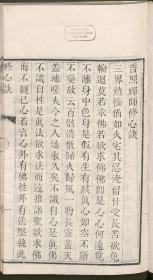 普照禪師修心訣
三界熱惱猶如火宅其忍淹留甘受長苦欲免
輪迴莫若求佛若欲求佛佛卽是心心何遠覓
不離身中色身是假有生有滅眞心如空不斷
不變故云百骸潰散歸火歸風一物長靈蓋天
蓋地嗟夫今之人迷來久矣不識自心是眞佛
不識自性是眞法欲求法而遠推諸聖欲求佛
而不觀己心若言心外有佛性外有法堅執此
修心訣